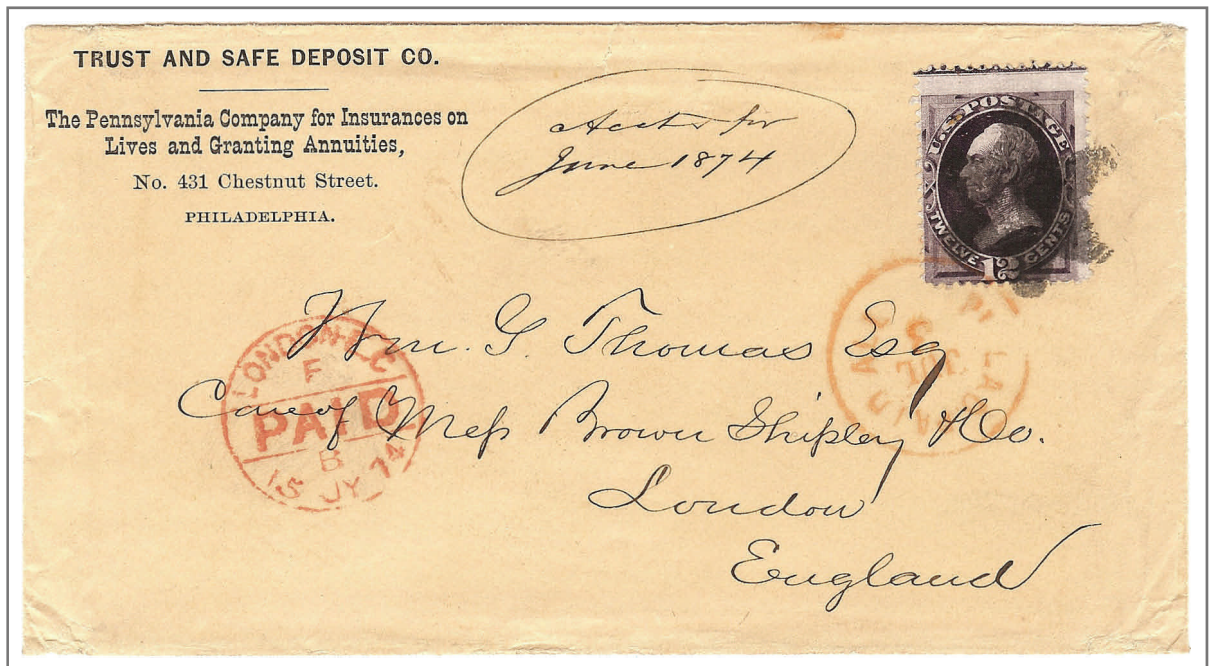 TRUST AND SAFE DEPOSIT CO.
The Pennsylvania Company for Insurances on
Lives and Granting Annuities,
No. 431 Chestnut Street.
PHILADELPHIA.
Accts for
June 1874
U.S. POSTAGE
TWELVE 12 CENTS
Wm. G. Thomas Esq
Care of Mess Brown Shipley & Co.
London
England
LONDON E.C
F
PAID
B
15 JY 74
JUL